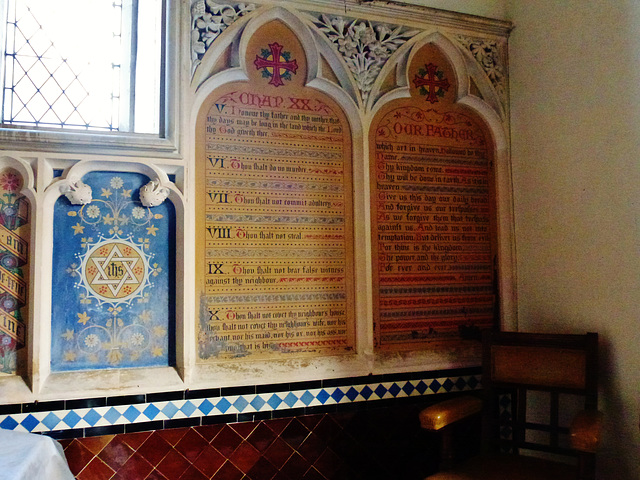 CHAP. XX.
V. Honour thy father and thy mother that
thy days may be long in the land which the Lord
thy God giveth thee.
VI. Thou shalt do no murder
VII. Thou shalt not commit adultery
VIII. Thou shalt not steal
IX. Thou shalt not bear false witness
against thy neighbour.
X. Thou shalt not covet thy neighbour's house
thou shalt not covet thy neighbour's wife, nor his
servant, nor his maid, nor his ox, nor his ass, nor
that is his
OUR FATHER
which art in heaven, Hallowed be thy
name
Thy kingdom come
Thy will be done in earth
heaven
Give us this day our daily bread
And forgive us our trespasses
As we forgive them that trespass
against us. And lead us not into
temptation But deliver us from
For thine is the kingdom
The power, and the glory
For ever and ever
ihs